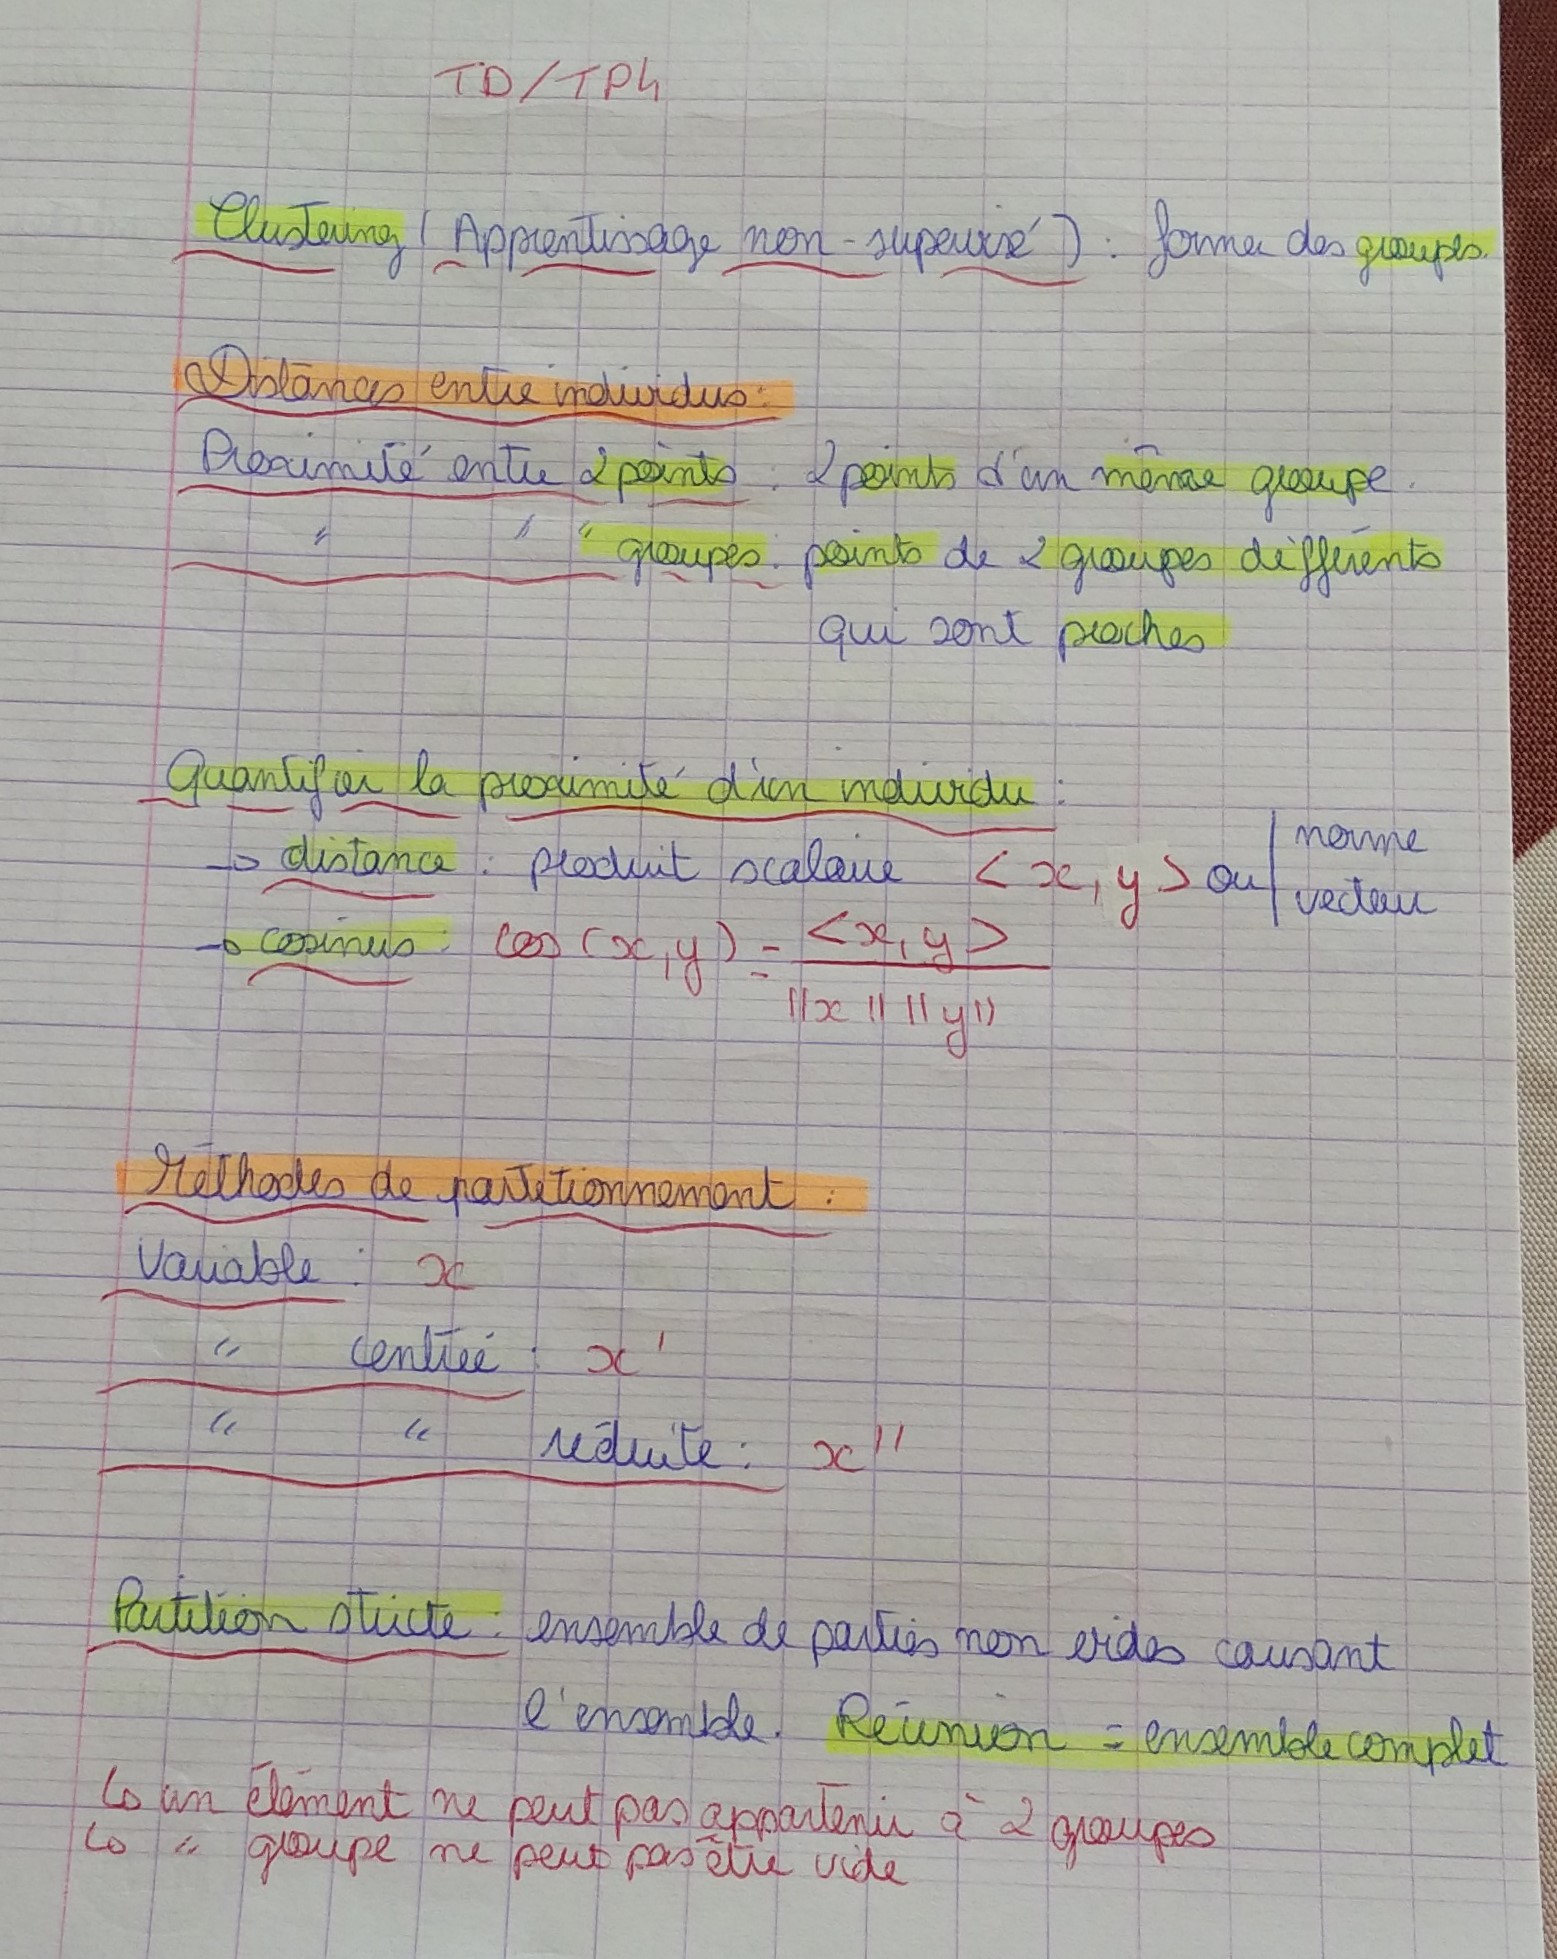 TD/TP4
Clustering (Apprentissage non-supervisé) : former des groupes.
Distances entre individus :
Proximité entre 2 points : 2 points d'un même groupe.
" " " groupes : points de 2 groupes différents
qui sont proches
Quantifier la proximité d'un individu :
→ distance : produit scalaire <x, y> ou | norme
vecteur
→ cosinus : cos(x,y) = <x, y>
||x|| ||y||
Méthodes de partitionnement :
Variable : x
" centrée : x'
" " réduite : x''
Partition stricte : ensemble de parties non vides causant
l'ensemble. Réunion = ensemble complet
↳ un élément ne peut pas appartenir à 2 groupes
↳ " groupe ne peut pas être vide